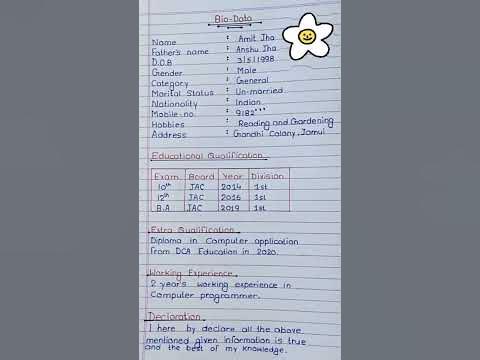 Bio-Data
Name : Amit Jha
Father's name : Anshu Jha
D.O.B : 3/5/1998
Gender : Male
Category : General
Marital Status : Un-married
Nationality : Indian
Mobile-no. : 9182***
Hobbies : Reading and Gardening
Address : Gandhi Colony, Jamui
Educational Qualification
Exam Board Year Division
10th JAC 2014 1st
12th JAC 2016 1st
B.A JAC 2019 1st
Extra Qualification
Diploma in Computer application
from DCA Education in 2020.
Working Experience
2 year's working experience in
Computer programmer.
Declaration
I here by declare all the above
mentioned given information is true
and the best of my knowledge.